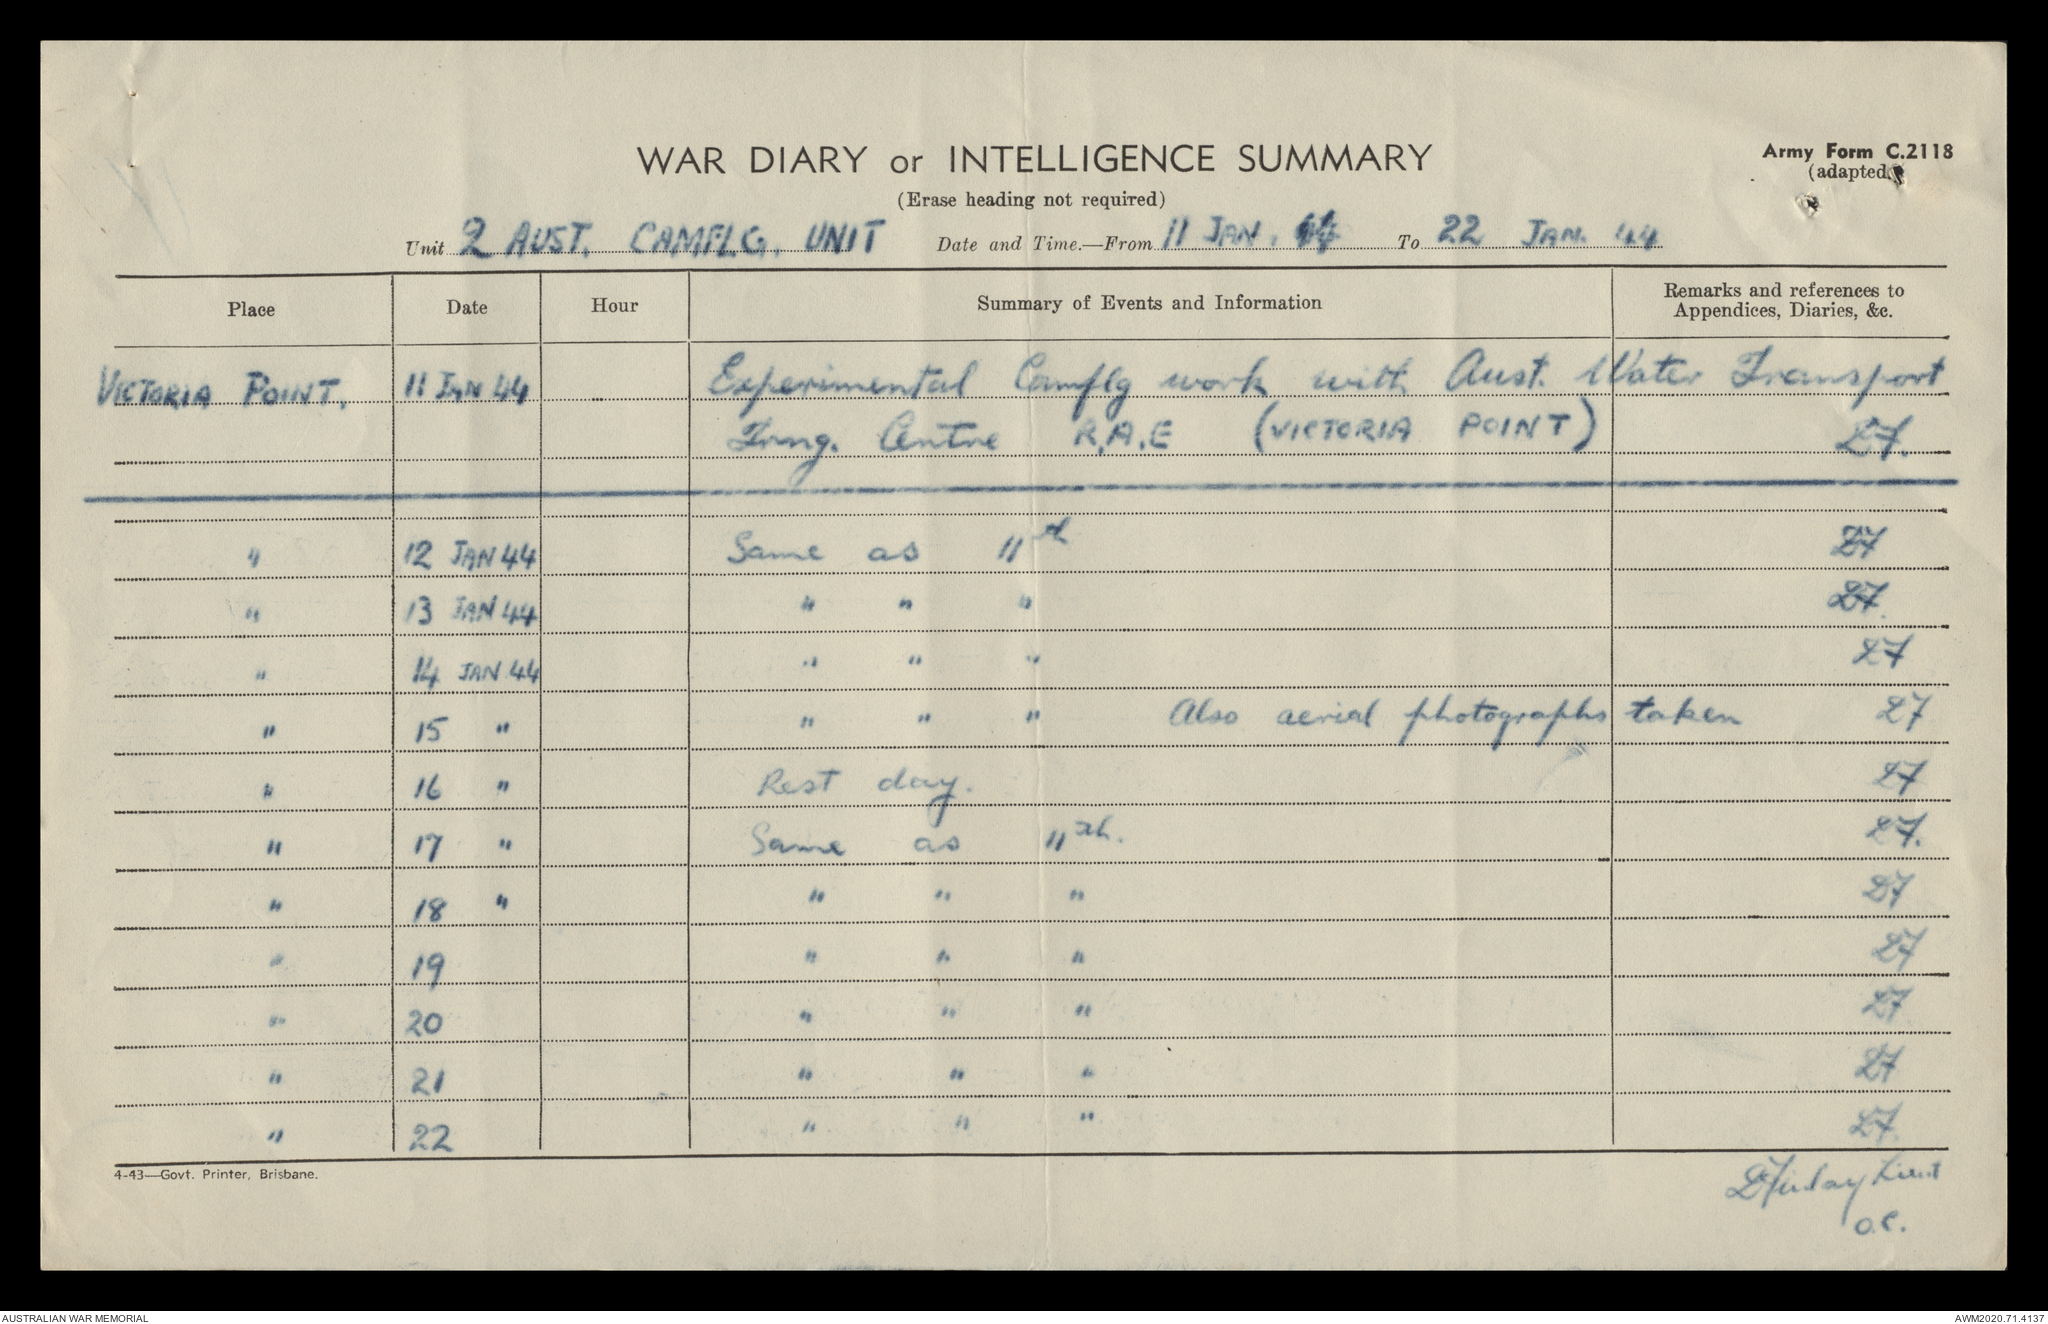 WAR DIARY or INTELLIGENCE SUMMARY
Army Form C.2118
(adapted)
(Erase heading not required)
Unit 2 AUST. CAMFLG. UNIT Date and Time.—From 11 JAN. 44 To 22 JAN. 44
Place Date Hour Summary of Events and Information Remarks and references to
Appendices, Diaries, &c.
VICTORIA POINT. 11 JAN 44 Experimental Camflg work with Aust. Water Transport
Trng. Centre R.A.E (VICTORIA POINT) DF.
" 12 JAN 44 Same as 11th DF
" 13 JAN 44 " " " DF.
" 14 JAN 44 " " " DF
" 15 " " " " Also aerial photographs taken DF
" 16 " Rest day. DF
" 17 " Same as 11th. DF.
" 18 " " " " DF
" 19 " " " DF
" 20 " " " DF
" 21 " " " DF
" 22 " " " DF.
4-43—Govt. Printer, Brisbane.
DFinlay Lieut
O.C.
AUSTRALIAN WAR MEMORIAL AWM2020.71.4137